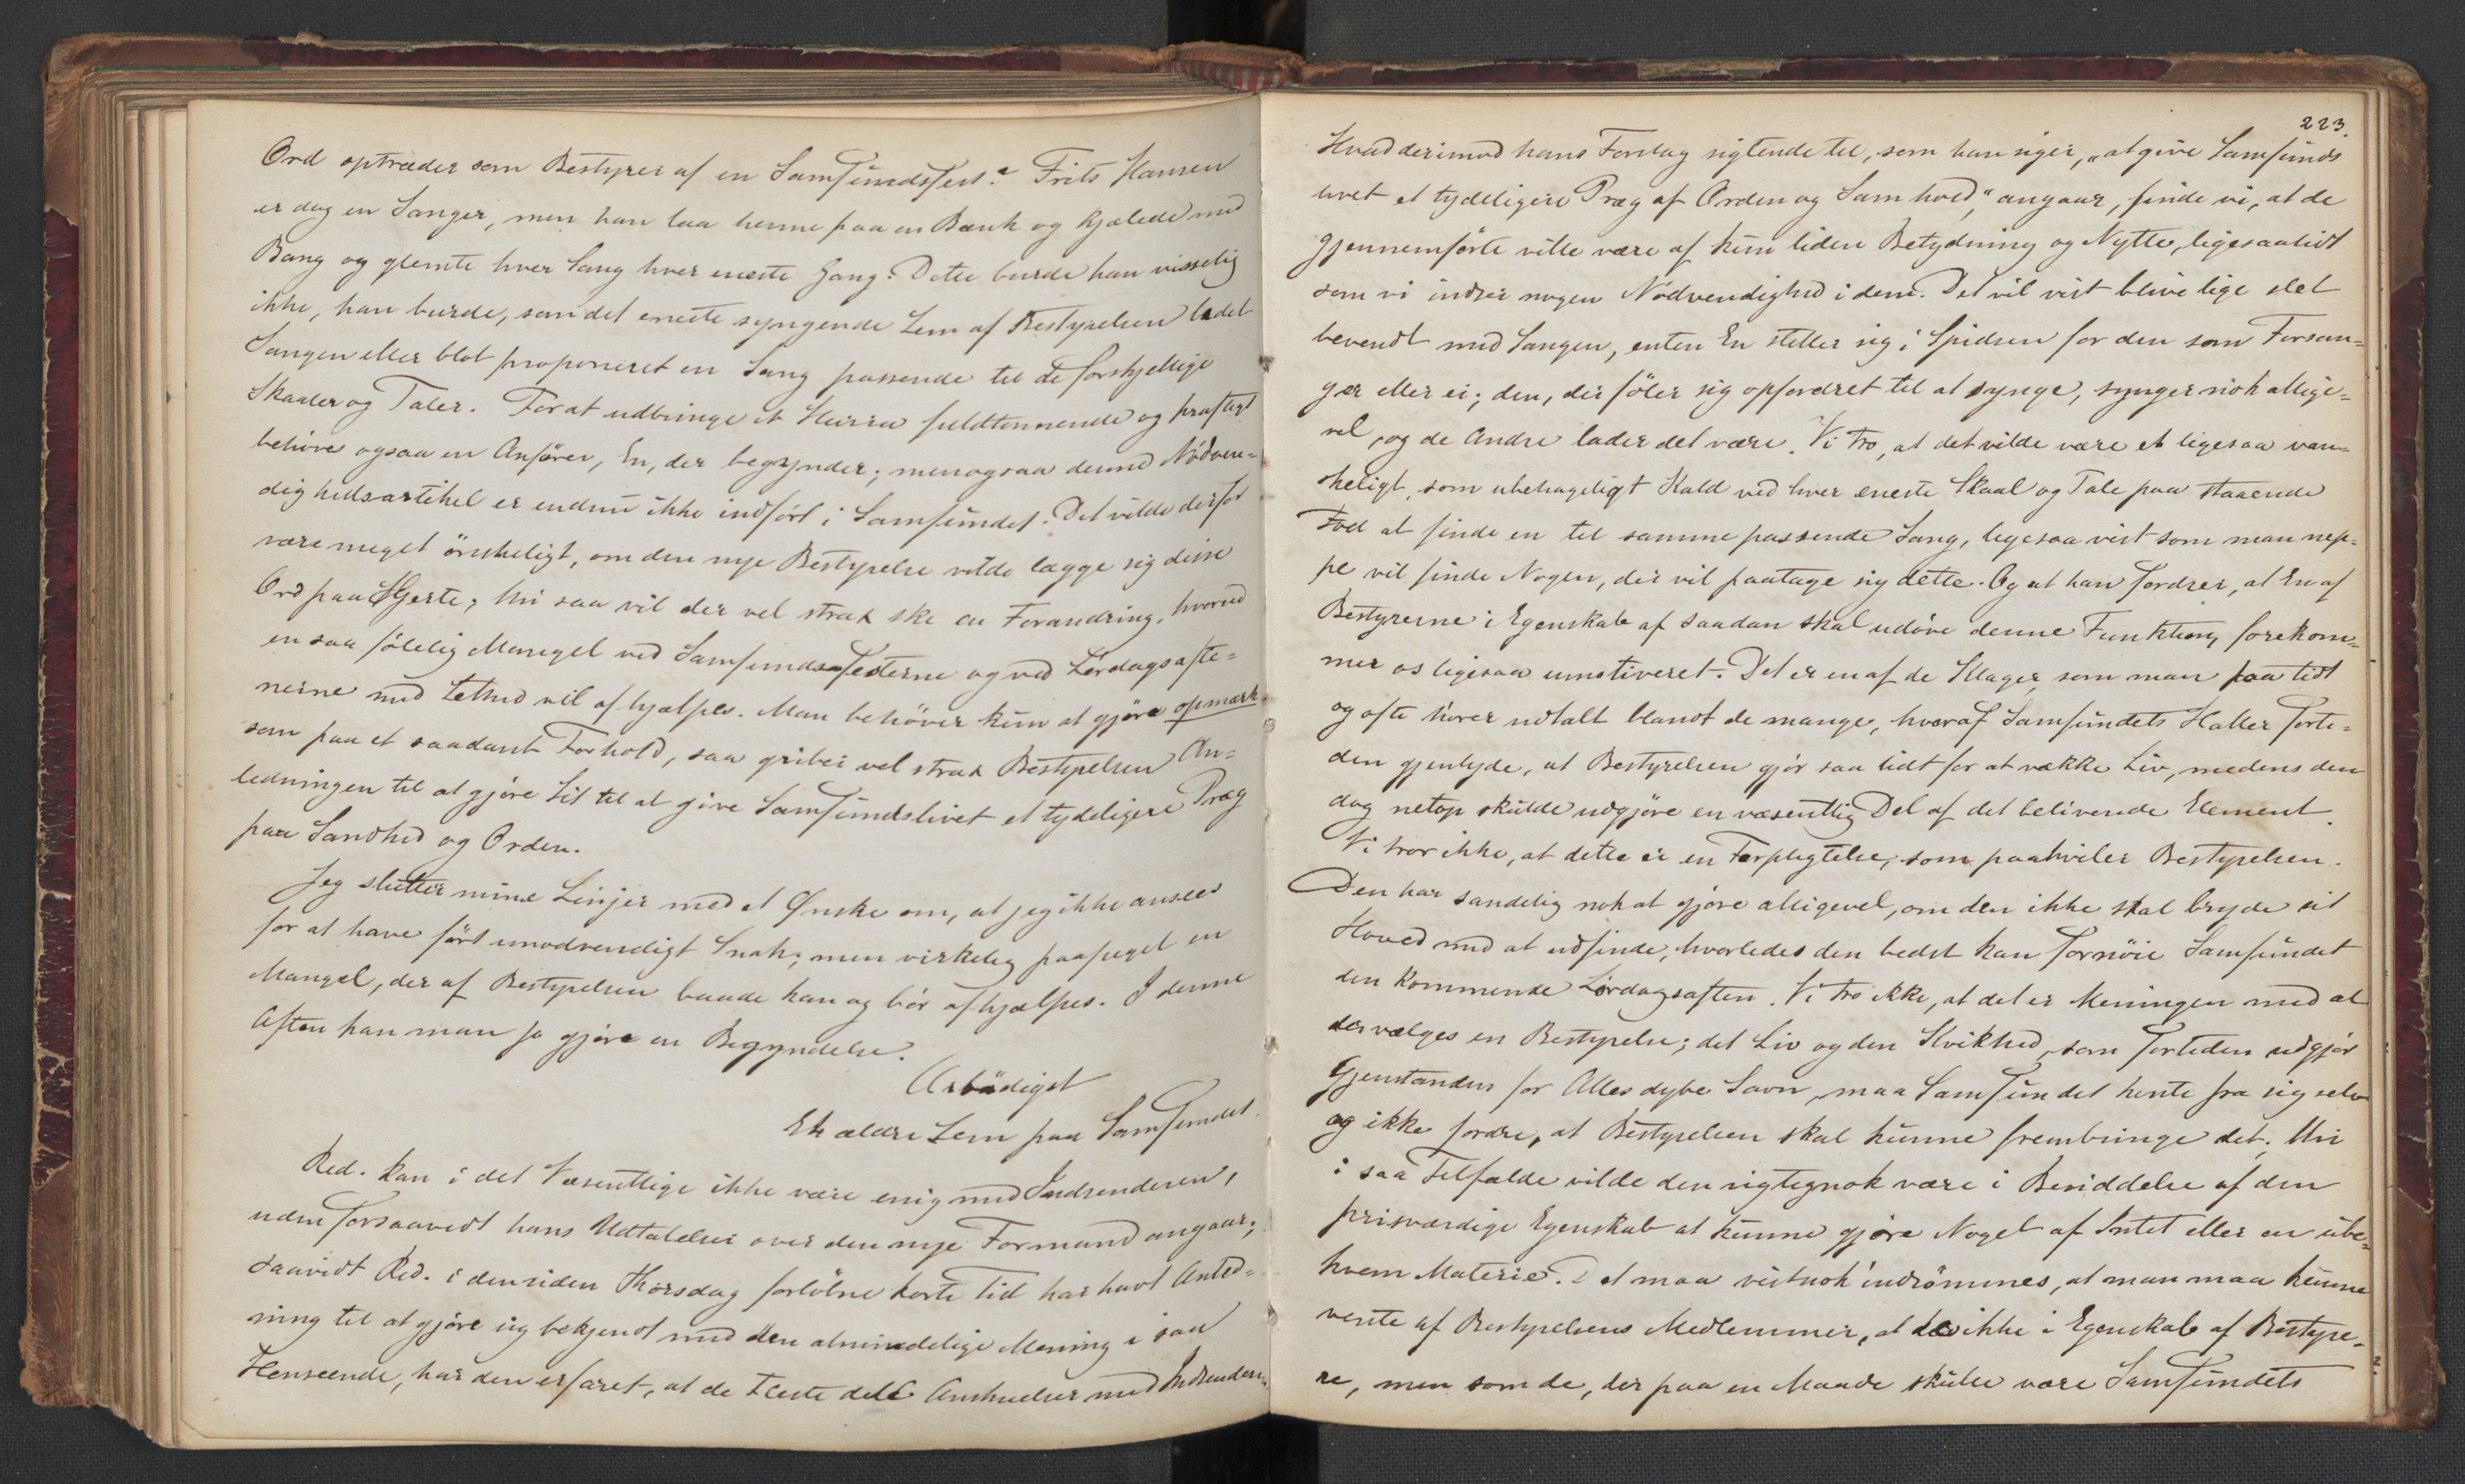 Ord optræder som Bestyrer af en Samfundsfest? Frits Hansen
er dog en Sanger, men han laa henne paa en Bænk og kjælede med
Bang og glemte hver Sang hver eneste Gang. Dette burde han visselig
ikke, han burde, som det eneste syngende Lem af Bestyrelsen ledet
Sangen eller blot proponeret en Sang passende til de forskjellige
Skaaler og Taler. For at udbringe et Hurra fuldttonnende og kraftigt
behøves ogsaa en Anfører, En, der begynder; men ogsaa denne Nødven=
dighedsartikel er endnu ikke indført i Samfundet. Det vilde derfor
være meget ønskeligt, om den nye Bestyrelse vilde lægge sig disse
Ord paa Hjerte; thi saa vil der vel strax ske en Forandring, hvorved
en saa følelig Mangel ved Samfundsfesterne og ved Lørdagsafte=
nerne med Lethed vil afhjælpes. Man behøver kun at gjøre opmærk
som paa et saadant Forhold, saa griber vel strax Bestyrelsen An=
ledningen til at gjøre Sit til at give Samfundslivet et tydeligere Præg
paa Sandhed og Orden.
Jeg slutter mine Linjer med et Ønske om, at jeg ikke ansees
for at have ført unødvendigt Snak; men virkelig paapeget en
Mangel, der af Bestyrelsen baade kan og bör afhjælpes. I denne
Aften kan man jo gjøre en Begyndelse.
Ærbödigst
Et ældre Lem paa Samfundet.
Red. kan i det Væsentlige ikke være enig med Indsenderen,
uden forsaavidt hans Udtalelser over den nye Formand angaar;
saavidt Red. i den siden Thorsdag forløbne korte Tid har havt Anled=
ning til at gjøre sig bekjendt med den almindelige Mening i saa
Henseende, har den erfaret, at de Fleste dele Anskuelser med Indsenderen.
223.
Hvad derimod hans Forslag sigtende til, som han siger, "at give Samfunds
livet et tydeligere Præg af Orden og Samhold," angaar, finde vi, at de
gjennemførte ville være af kun liden Betydning og Nytte, ligesaalidt
som vi indser nogen Nödvendighed i dem. Det vil vist blive lige slet
bevendt med Sangen, enten En stiller sig i Spidsen for den som Forsan=
ger eller ei; den, der föler sig opfordret til at synge, synger nok allige=
vel, og de Andre lader det være. Vi tro, at det vilde være et ligesaa van=
skeligt, som ubehageligt Kald ved hver eneste Skaal og Tale paa staaende
Fod at finde en til samme passende Sang, ligesaa vist som man nep=
pe vil finde Nogen, der vil paatage sig dette. Og at han fordrer, at En af
Bestyrerne i Egenskab af saadan skal udöve denne Funktion, forekom=
mer os ligesaa umotiveret. Det er en af de Klager, som man saa tidt
og ofte hører udtalt blandt de mange, hvoraf Samfundets Haller forti=
den gjenlyde, at Bestyrelsen gjør saa lidt for at vække Liv, medens den
dog netop skulde udgjøre en væsentlig Del af det belivende Element.
Vi tror ikke, at dette er en Forpligtelse, som paahviler Bestyrelsen.
Den har sandelig nok at gjøre alligevel, om den ikke skal bryde sit
Hoved med at udfinde, hvorledes den bedst kan fornöie Samfundet
den kommende Lørdagsaften. Vi tro ikke, at det er Meningen med at
der vælges en Bestyrelse; det Liv og den Kvikhed, som fortiden udgjør
Gjenstanden for Alles dybe Savn, maa Samfundet hente fra sig selv
og ikke fordre, at Bestyrelsen skal kunne frembringe det. Thi
i saa Tilfælde vilde den rigtignok være i Besiddelse af den
prisværdige Egenskab at kunne gjøre Noget af Intet eller en ube=
kvem Materie. Det maa vistnok indrömmes, at man maa kunne
vente af Bestyrelsens Medlemmer, at de ikke i Egenskab af Bestyre=
re, men som de, der paa en Maade skulle være Samfundets